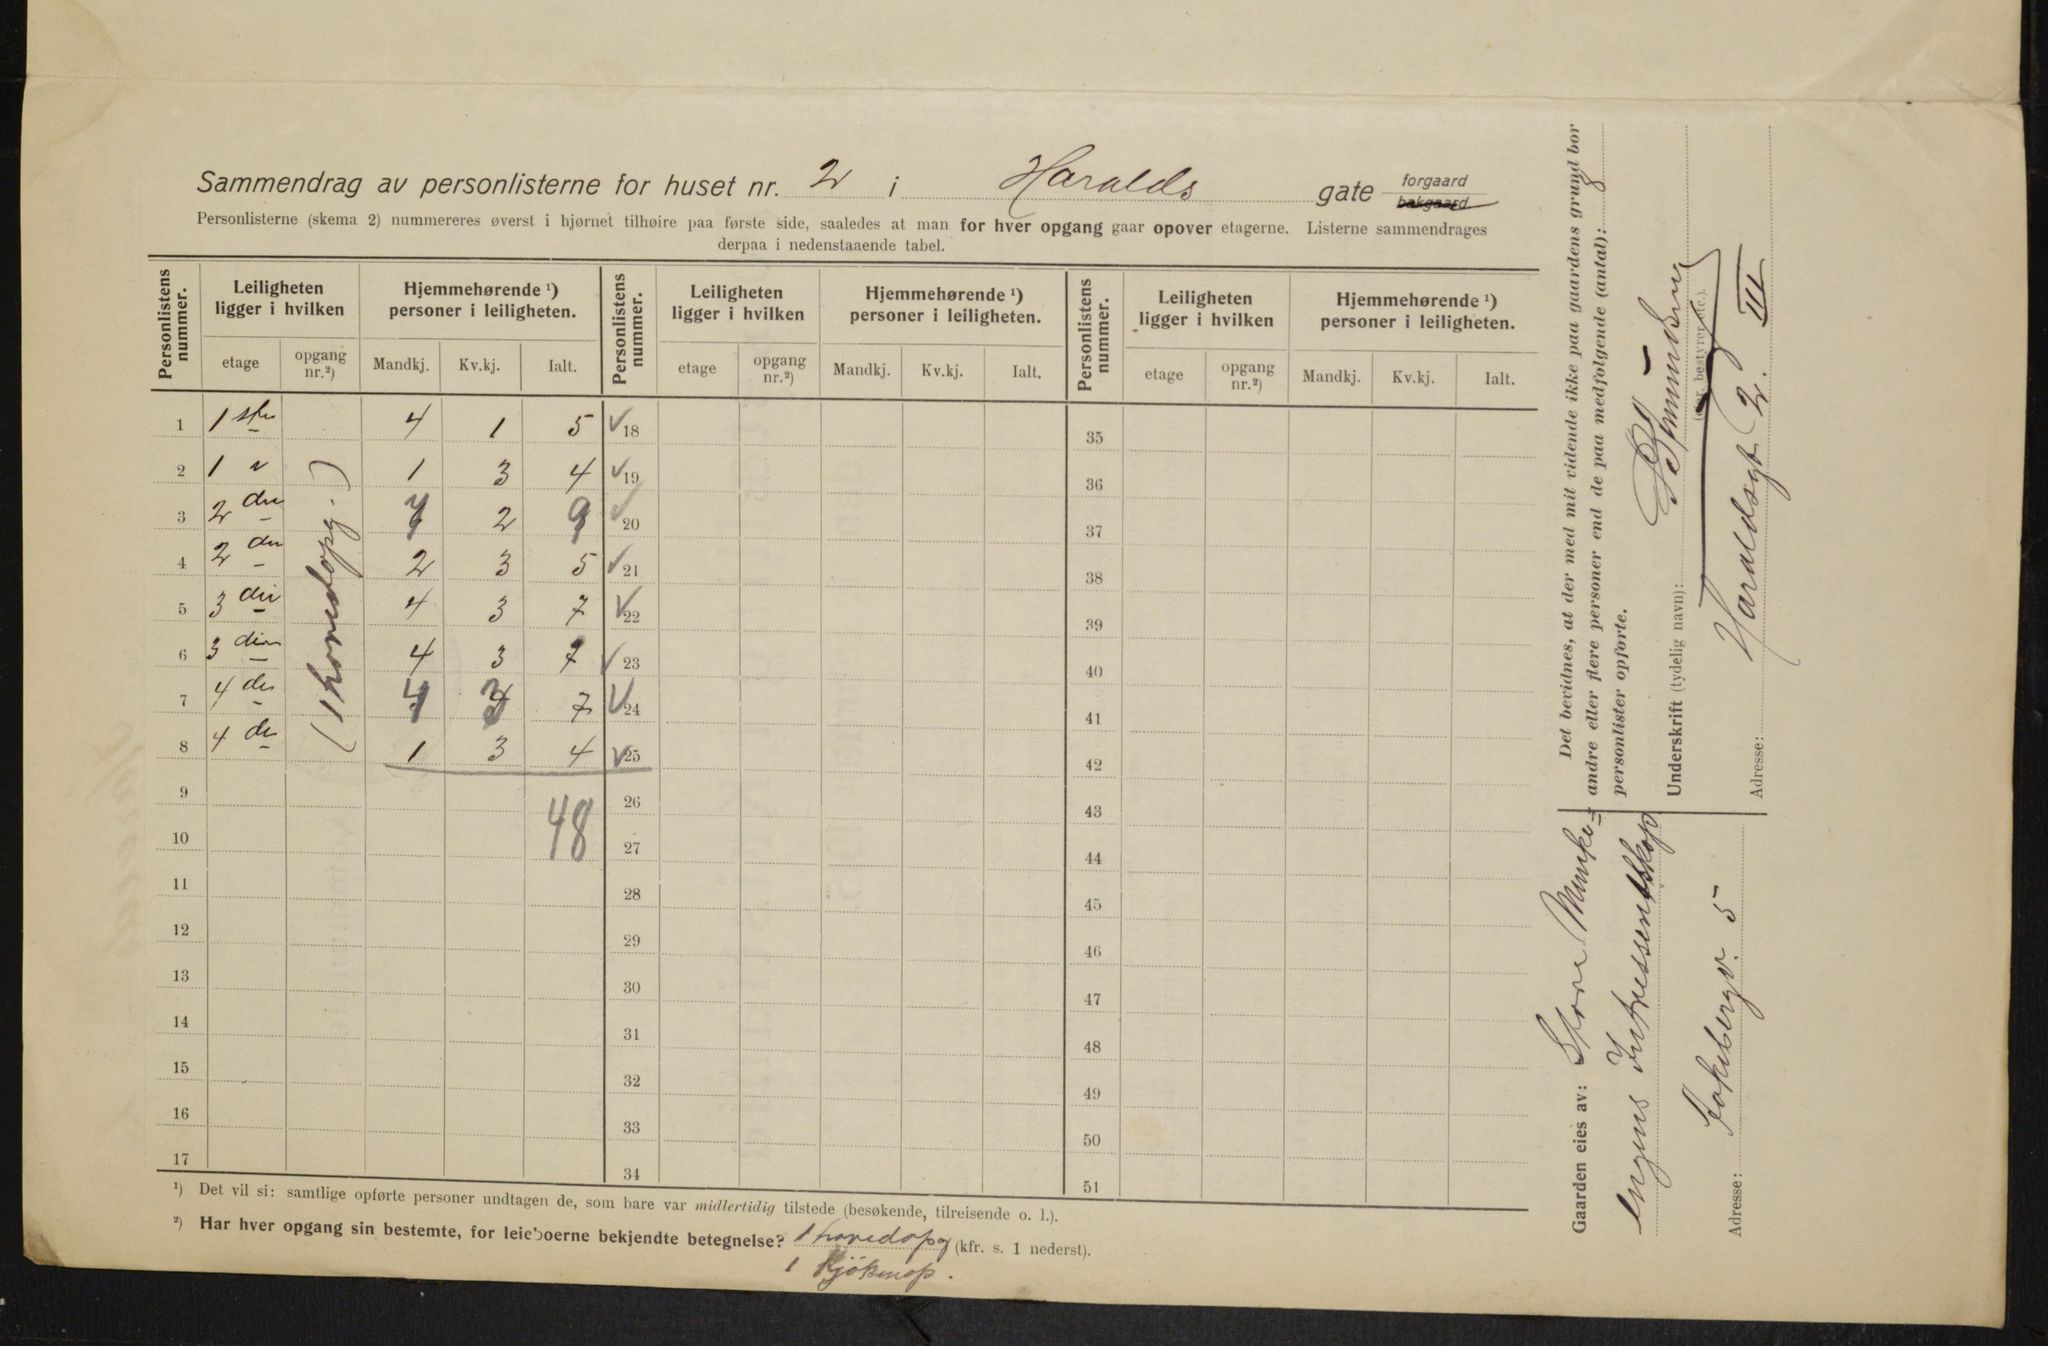 Sammendrag av personlisterne for huset nr. 2 i Haralds gate forgaard bakgaard.
Personlisterne (skema 2) nummereres øverst i hjørnet tilhøire paa første side, saaledes at man for hver opgang gaar opover etagerne. Listerne sammendrages
derpaa i nedenstaaende tabel.
Personlistens nummer. Leiligheten ligger i hvilken Hjemmehørende ¹) personer i leiligheten. Personlistens nummer. Leiligheten ligger i hvilken Hjemmehørende ¹) personer i leiligheten. Personlistens nummer. Leiligheten ligger i hvilken Hjemmehørende ¹) personer i leiligheten.
etage opgang nr.²) Mandkj. Kv.kj. Ialt. etage opgang nr.²) Mandkj. Kv.kj. Ialt. etage opgang nr.²) Mandkj. Kv.kj. Ialt.
1 1 ste 4 1 5 ✓ 18 35
2 1 " 1 3 4 ✓ 19 36
3 2 den 7 2 9 ✓ 20 37
4 2 den 2 3 5 ✓ 21 38
5 3 die 4 3 7 ✓ 22 39
6 3 die 4 3 7 ✓ 23 40
7 4 de 4 3 7 ✓ 24 41
8 4 de 1 3 4 ✓ 25 42
(1 hovedopg.)
9 26 43
48
10 27 44
11 28 45
12 29 46
13 30 47
14 31 48
15 32 49
16 33 50
17 34 51
¹) Det vil si: samtlige opførte personer undtagen de, som bare var midlertidig tilstede (besøkende, tilreisende o. l.).
²) Har hver opgang sin bestemte, for leieboerne bekjendte betegnelse? 1 hovedopg (kfr. s. 1 nederst).
1 Kjökenop.
Det bevidnes, at der med mit vidende ikke paa gaardens grund bor
andre eller flere personer end de paa medfølgende (antal): 8
personlister opførte.
Underskrift (tydelig navn):
(eier, bestyrer etc.).
Adresse: Haraldsgt 2. III
Gaarden eies av: Store Munke=
engens Intressentskap
Adresse: 5